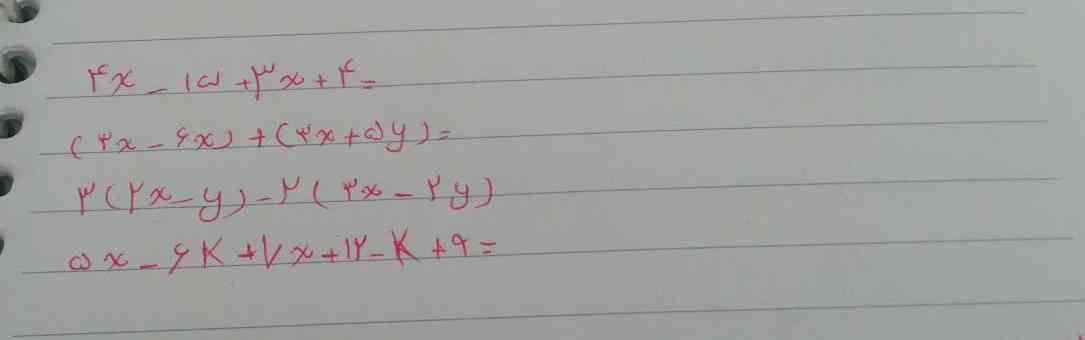 ۴x - ۱۵ + ۳x + ۴ =
(۳x - ۶x) + (۳x + ۵y) =
۳(۲x - y) - ۲(۳x - ۲y)
۵x - ۶K + ۷x + ۱۲ - K + ۹ =